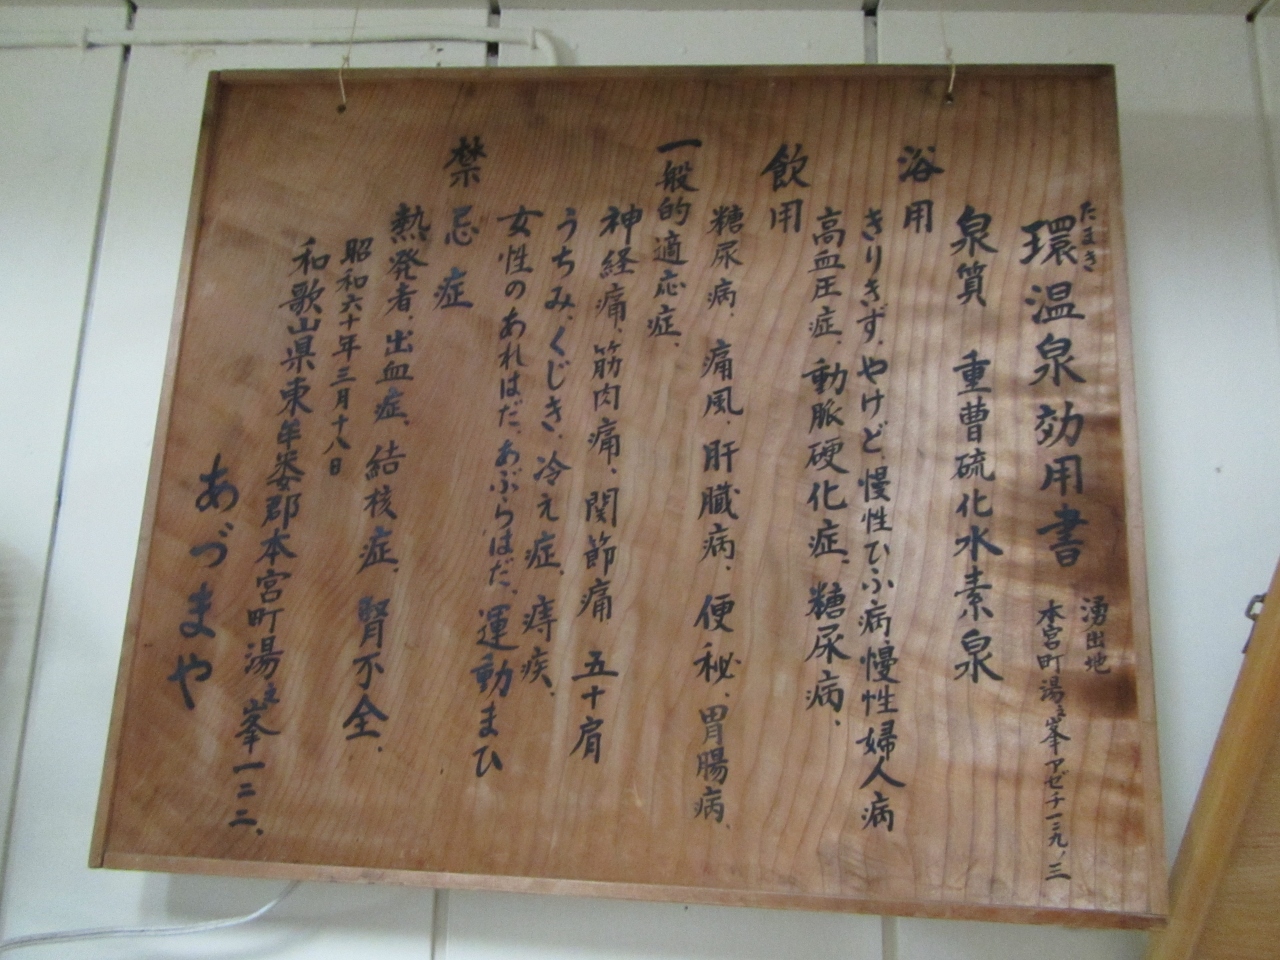 たまき
環温泉効用書
湧出地
本宮町湯之峯アゼチ一三九ノ三
泉質 重曹硫化水素泉
浴用
きりきず、やけど、慢性ひふ病、慢性婦人病
高血圧症、動脈硬化症、糖尿病、
飲用
糖尿病、痛風、肝臓病、便秘、胃腸病、
一般的適応症、
神経痛、筋肉痛、関節痛 五十肩
うちみ、くじき、冷え症、痔疾、
女性のあれはだ、あぶらはだ、運動まひ
禁忌症
熱発者、出血症、結核症、腎不全、
昭和六十年三月十八日
和歌山県東牟婁郡本宮町湯之峯一二二、
あづまや